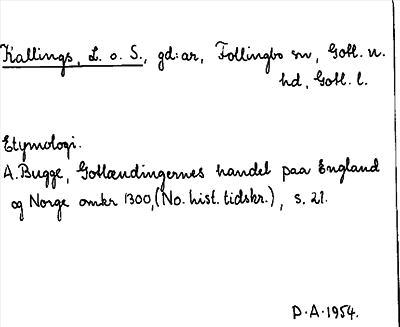 Kallings, L. o. S., gd:ar, Follingbo sn, Gotl. n.
hd, Gotl. l.
Etymologi.
A. Bugge, Gotlændingernes handel paa England
og Norge omkr 1300, (No. hist. tidskr.), s. 21.
P.A. 1954.